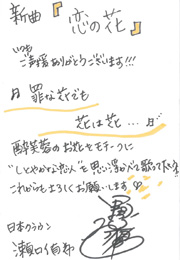 新曲『恋の花』
いつも
ご声援ありがとうございます!!!
罪な花でも
花は花…
酔芙蓉のお花をモチーフに
"しとやかな恋人"を思い浮かべて歌って下さい
これからもよろしくお願いします
日本クラウン
瀬口侑希